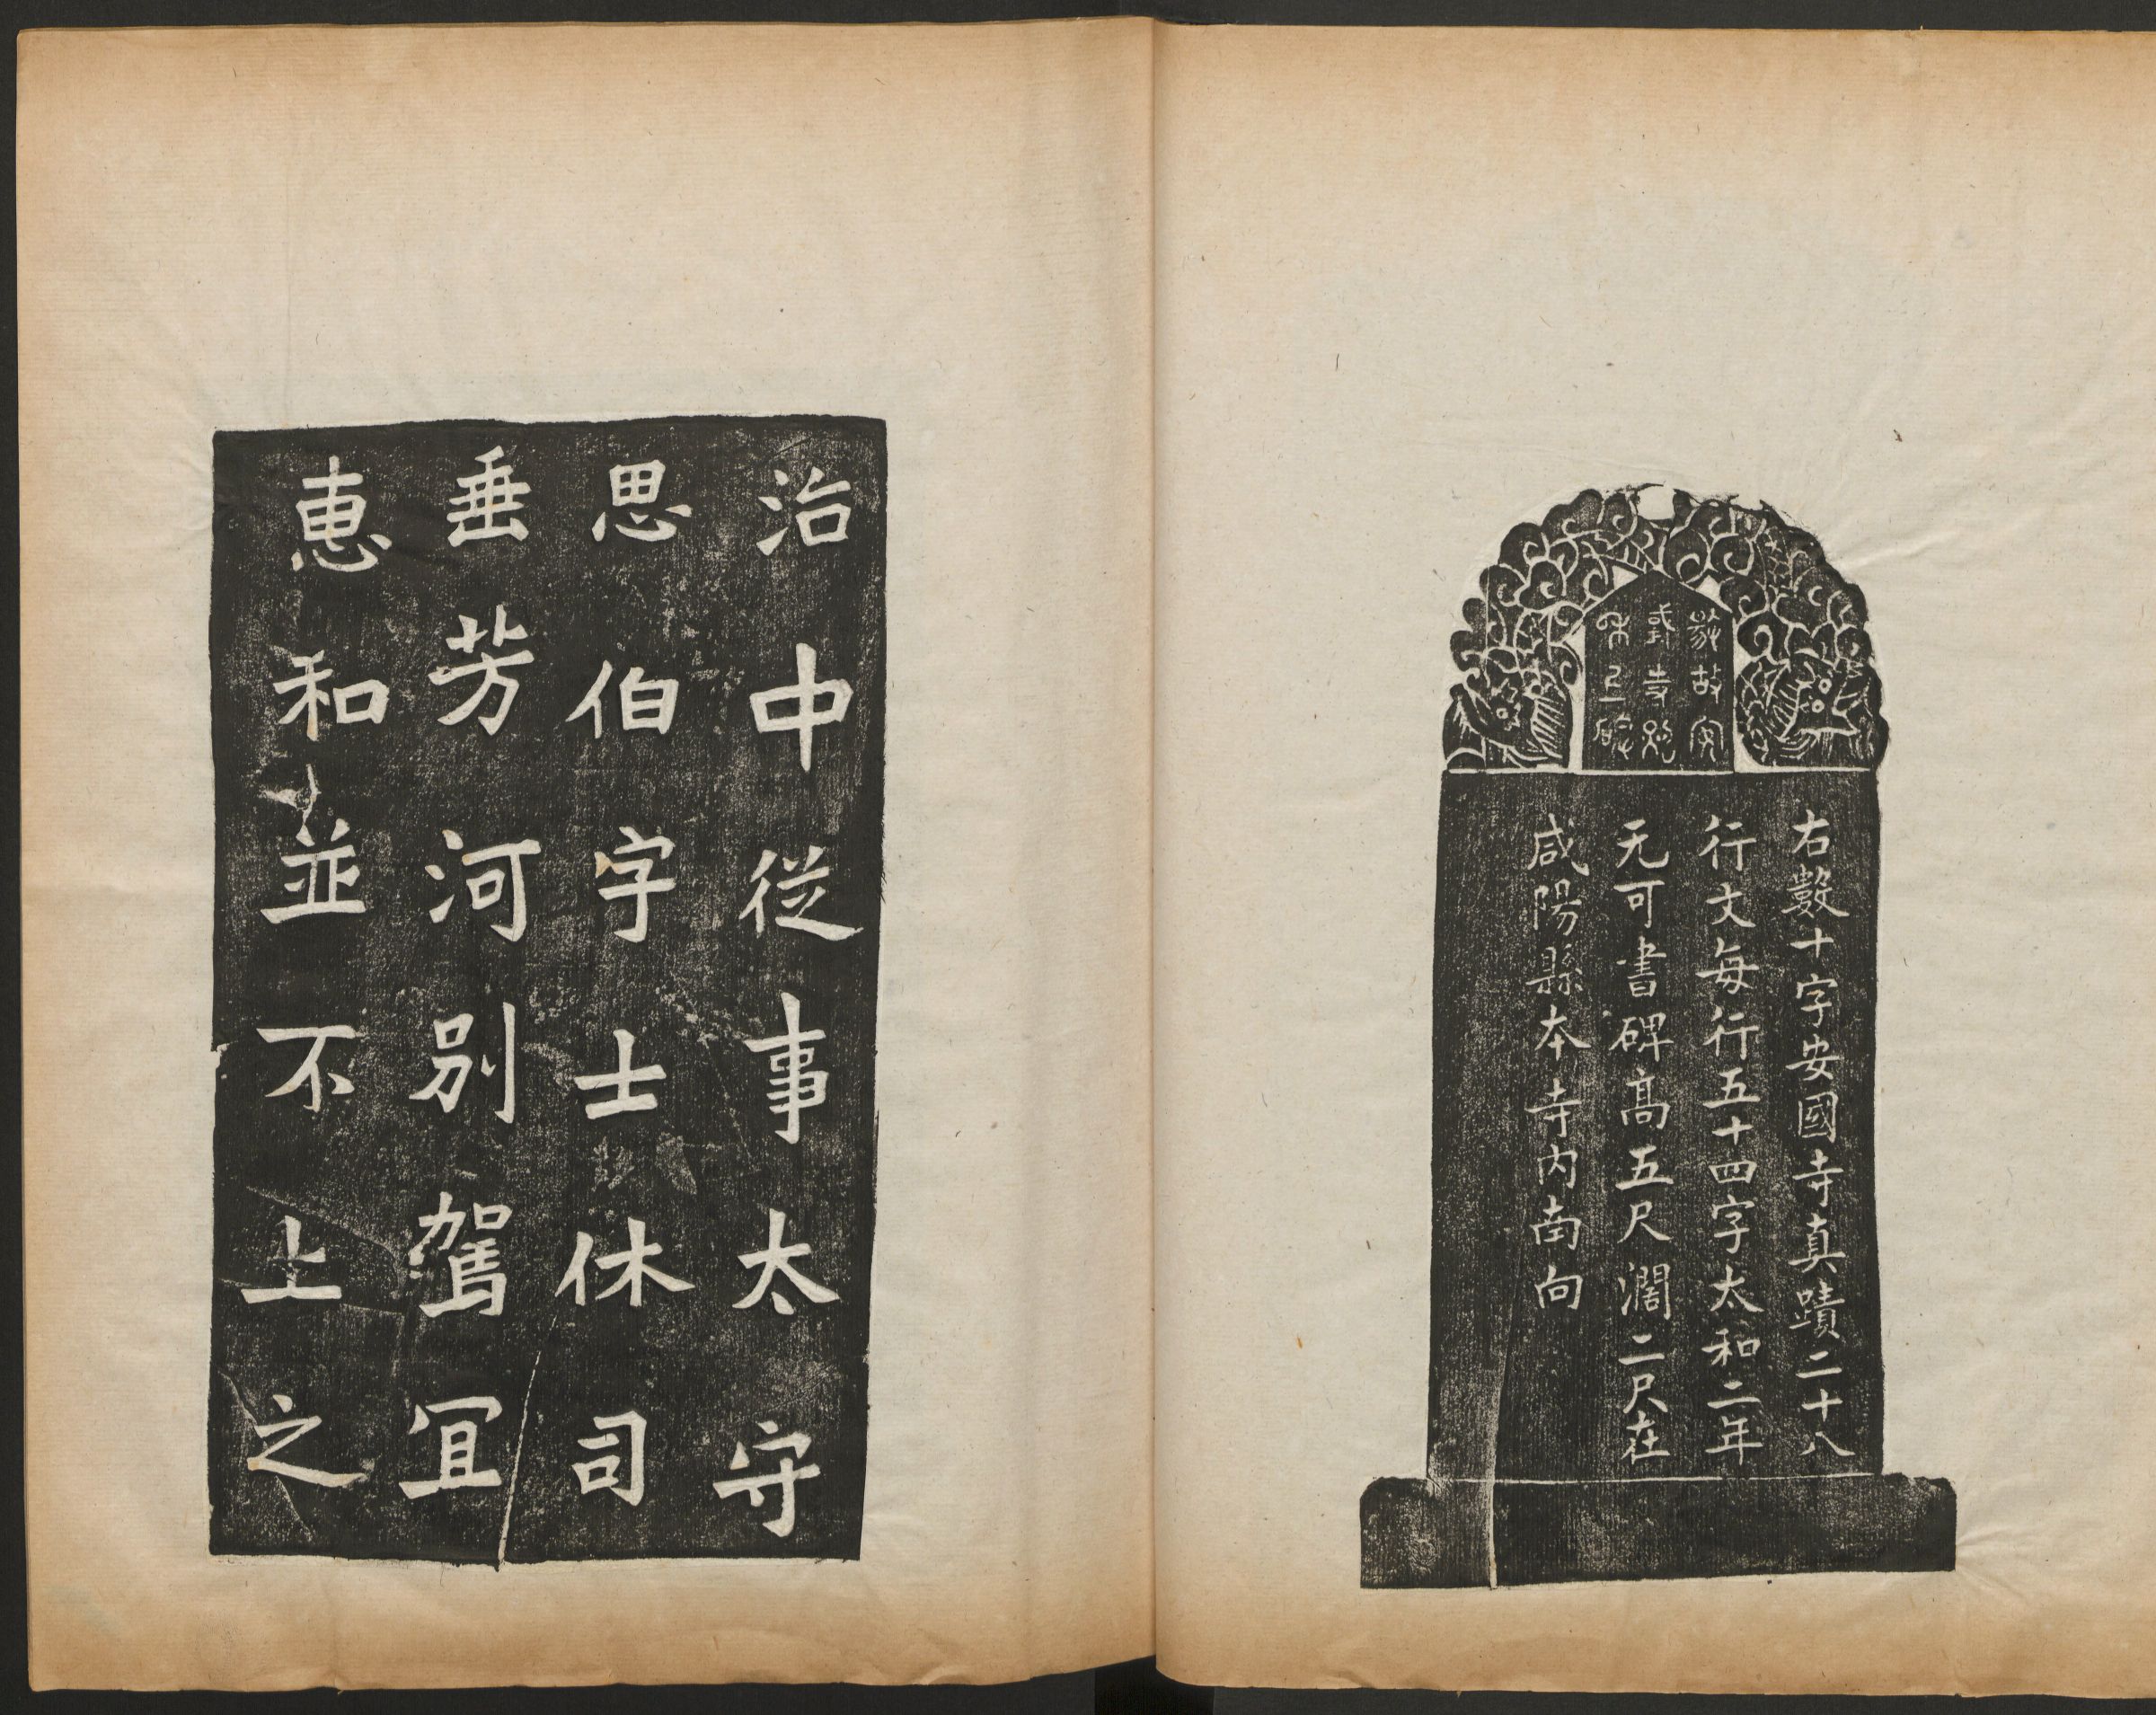 右數十字安國寺真蹟二十八
行文每行五十四字太和二年
无可書碑高五尺濶二尺在
咸陽縣本寺内南向
治中從事太守
思伯字士休司
垂芳河别駕冝
惠和並不上之